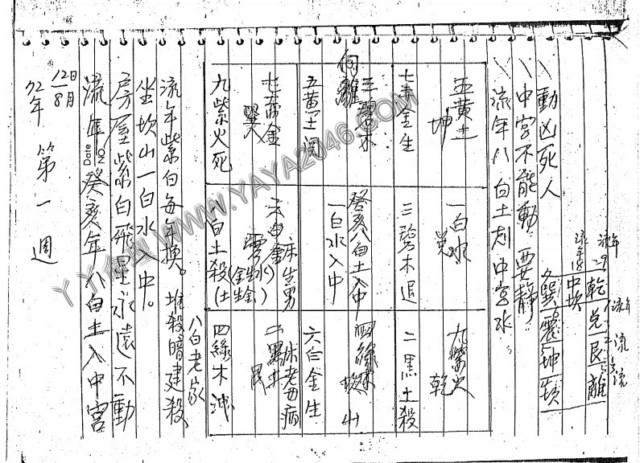 一動凶死人
一中宮不能動要靜
一流年八白土剋中宮水
流年
乾兌艮離
中坎
巽震坤
五黃土
坤
七赤金生
三碧木
向離
五黃土關
七赤金
巽
九紫火死
一白水
兌
三碧木退
癸亥八白土入中
一白水入中
六白金
床生男
震
八白土殺
九紫火
乾
二黑土殺
四綠木
坎山
六白金生
二黑土
床老母病
艮
四綠木洩
八白老家
流年紫白每年換。堆殺暗建殺
坐坎山一白水入中。
房屋紫白飛星永遠不動
流年癸亥年八白土入中宮
72年 12月8日 第一週
YY府 WWW.YAYA2046.COM